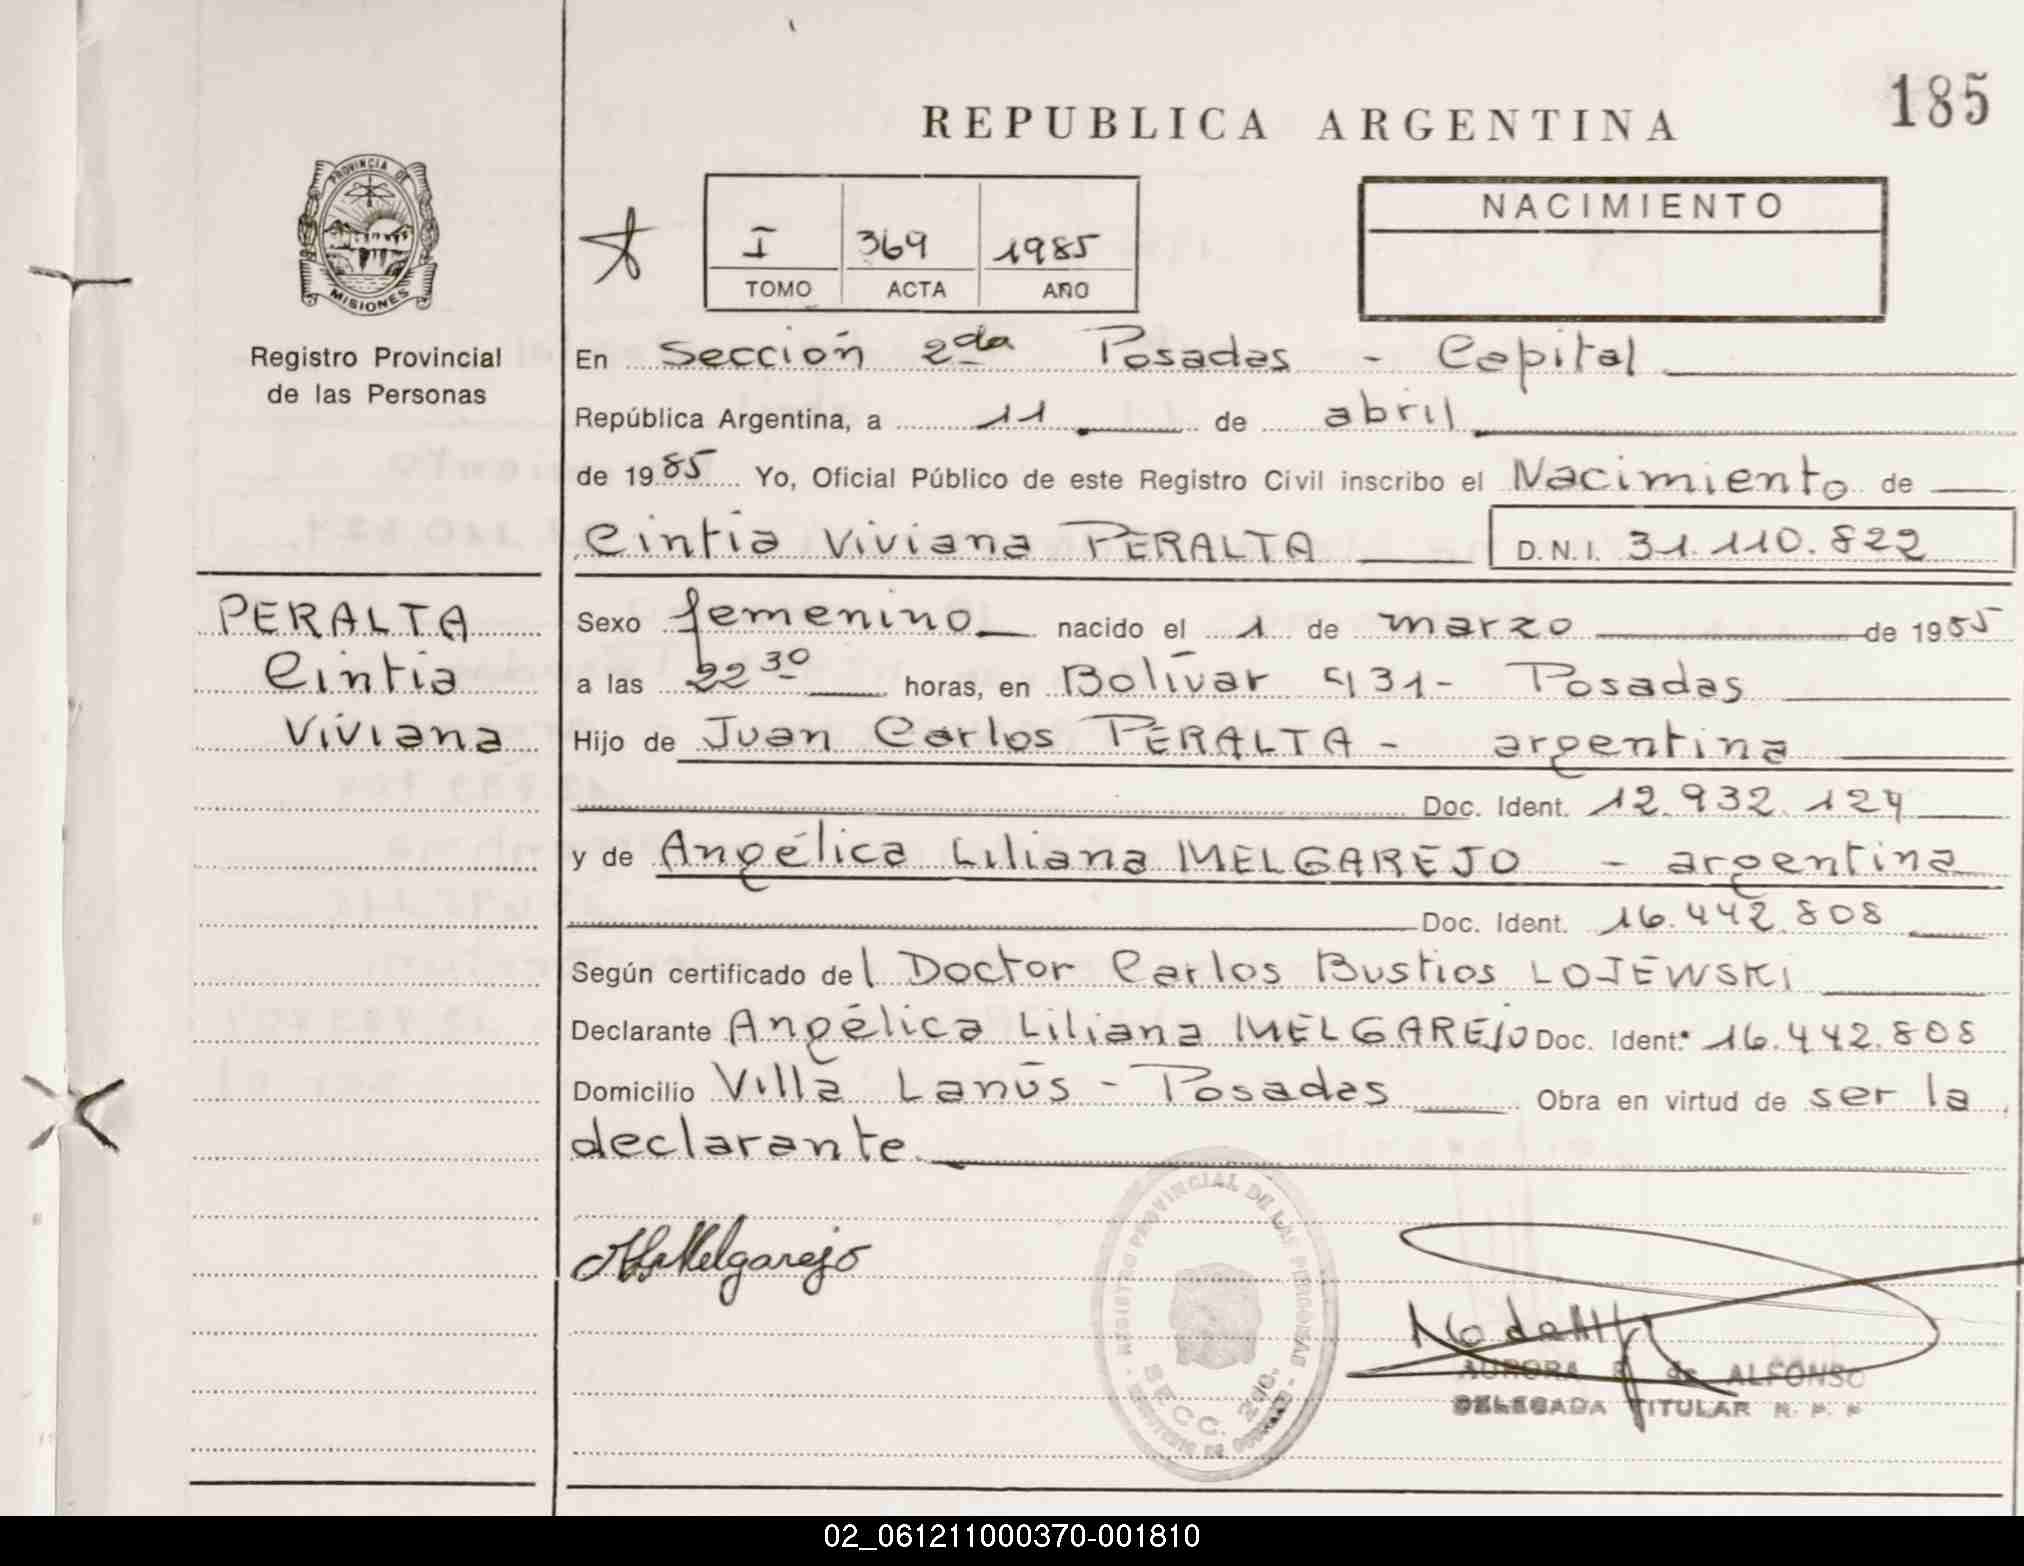 185
REPUBLICA ARGENTINA
PROVINCIA DE
MISIONES
Registro Provincial
de las Personas
I 369 1985
TOMO ACTA AÑO
NACIMIENTO
En Sección 2da Posadas - Capital
República Argentina, a 11 de abril
de 1985 Yo, Oficial Público de este Registro Civil inscribo el Nacimiento de
Cintia Viviana PERALTA D.N.I. 31.110.822
PERALTA
Cintia
Viviana
Sexo femenino nacido el 1 de marzo de 1985
a las 22 30 horas, en Bolívar 431- Posadas
Hijo de Juan Carlos PERALTA - argentina
Doc. Ident. 12.932.124
y de Angélica Liliana MELGAREJO - argentina
Doc. Ident. 16.442.808
Según certificado del Doctor Carlos Bustios LOJEWSKI
Declarante Angélica Liliana MELGAREJO Doc. Ident. 16.442.808
Domicilio Villa Lanús - Posadas Obra en virtud de ser la
declarante
Melgarejo
REGISTRO PROVINCIAL DE LAS PERSONAS
SECC. 2da.
AURORA de ALFONSO
DELEGADA TITULAR R. P. P
02_061211000370-001810